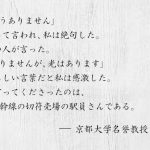 うありません」
って言われ、私は絶句した。
い人が言った。
りませんが、光はあります」
しい言葉だと私は感激した。
ってくださったのは、
幹線の切符売場の駅員さんである。
── 京都大学名誉教授